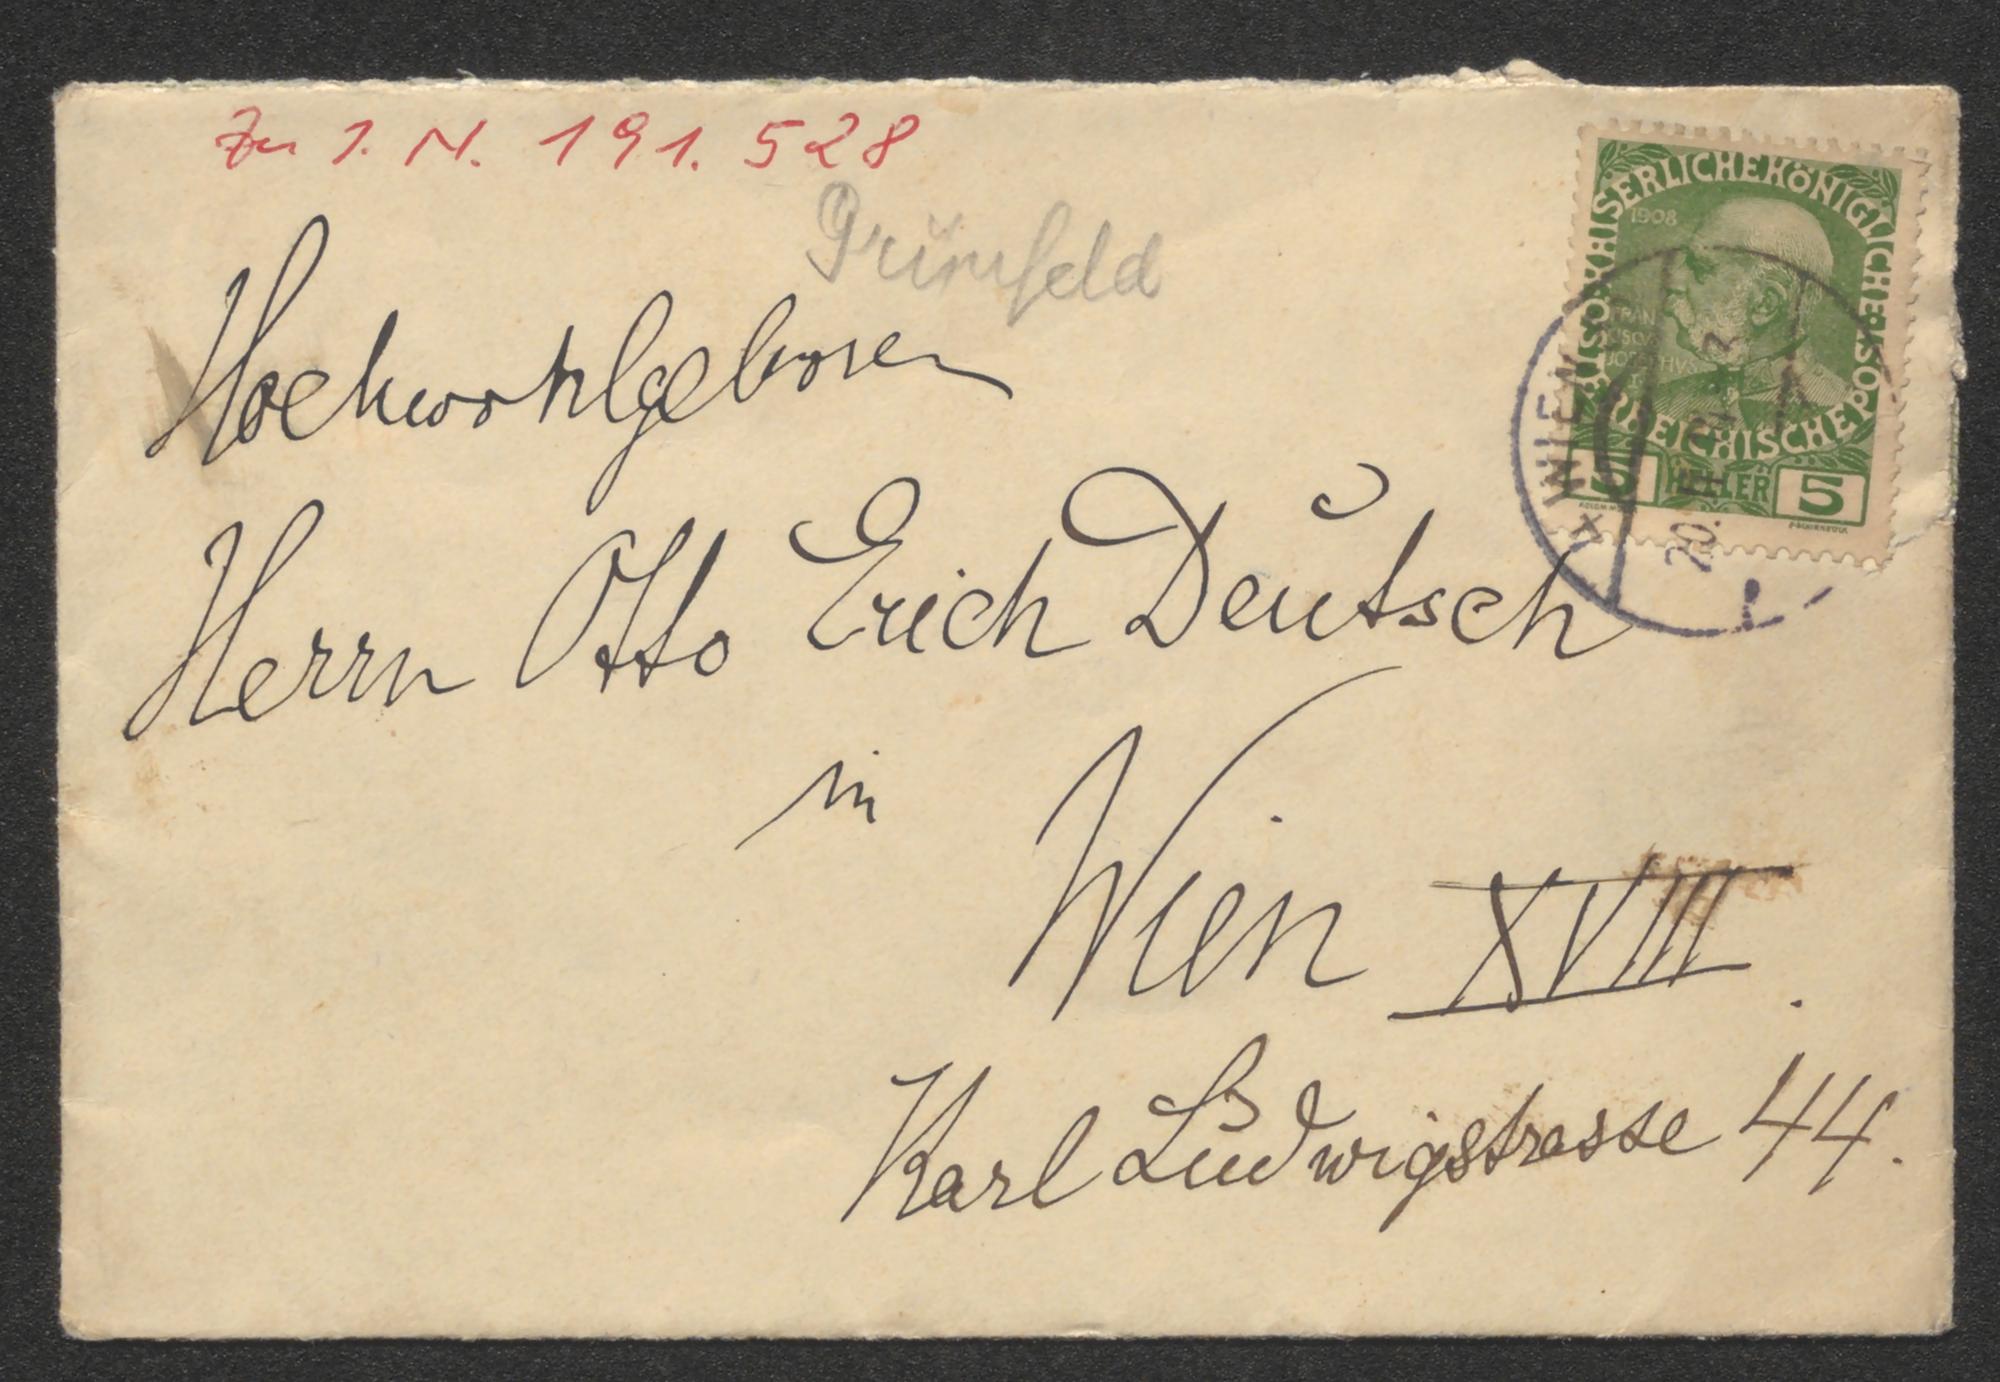 Zu I. N. 191.528
Grünfeld
KAISERLICHE KÖNIGLICHE ÖSTERREICHISCHE POST
1908
5 HELLER 5
WIEN
20.
Hochwohlgeboren
Herrn Otto Erich Deutsch
in
Wien XVIII.
Karl Ludwigstrasse 44.